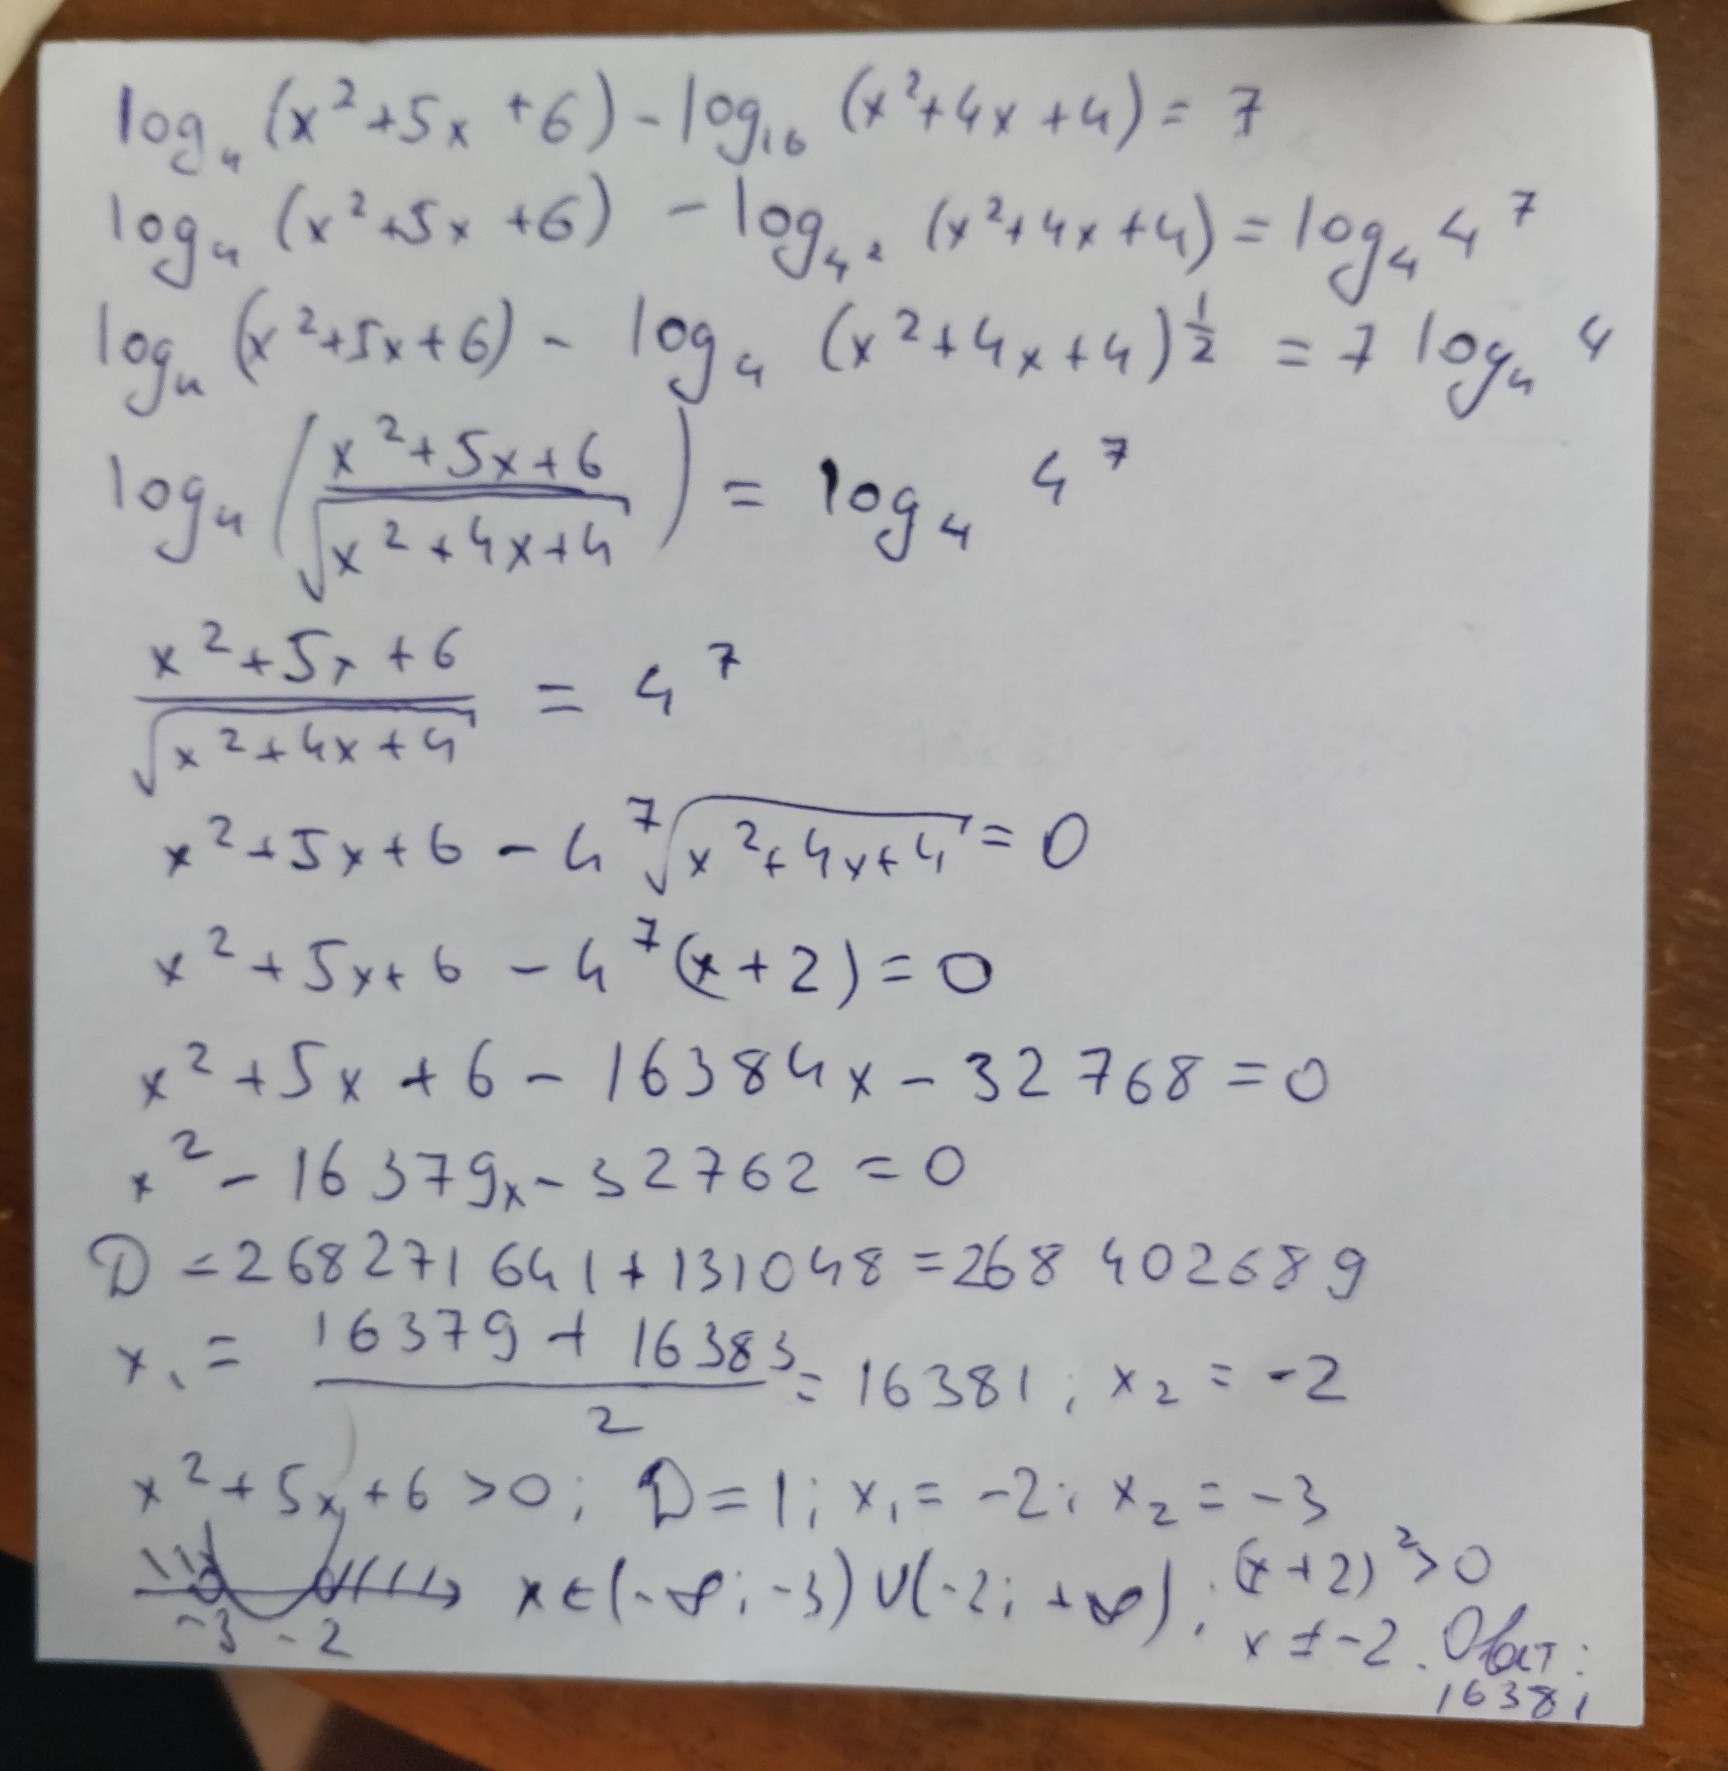 log₄ (x²+5x+6) - log₁₆ (x²+4x+4) = 7
log₄ (x²+5x+6) - log₄² (x²+4x+4) = log₄ 4⁷
log₄ (x²+5x+6) - log₄ (x²+4x+4)^(1/2) = 7 log₄ 4
log₄ ((x²+5x+6)/√(x²+4x+4)) = log₄ 4⁷
(x²+5x+6)/√(x²+4x+4) = 4⁷
x²+5x+6 - 4⁷√(x²+4x+4) = 0
x²+5x+6 - 4⁷(x+2) = 0
x²+5x+6 - 16384x - 32768 = 0
x² - 16379x - 32762 = 0
D = 268271641 + 131048 = 268402689
x₁ = (16379 + 16383)/2 = 16381; x₂ = -2
x²+5x+6 > 0; D = 1; x₁ = -2; x₂ = -3
-3 -2 x ∈ (-∞; -3) ∪ (-2; +∞); (x+2)² > 0
x ≠ -2. Ответ:
16381